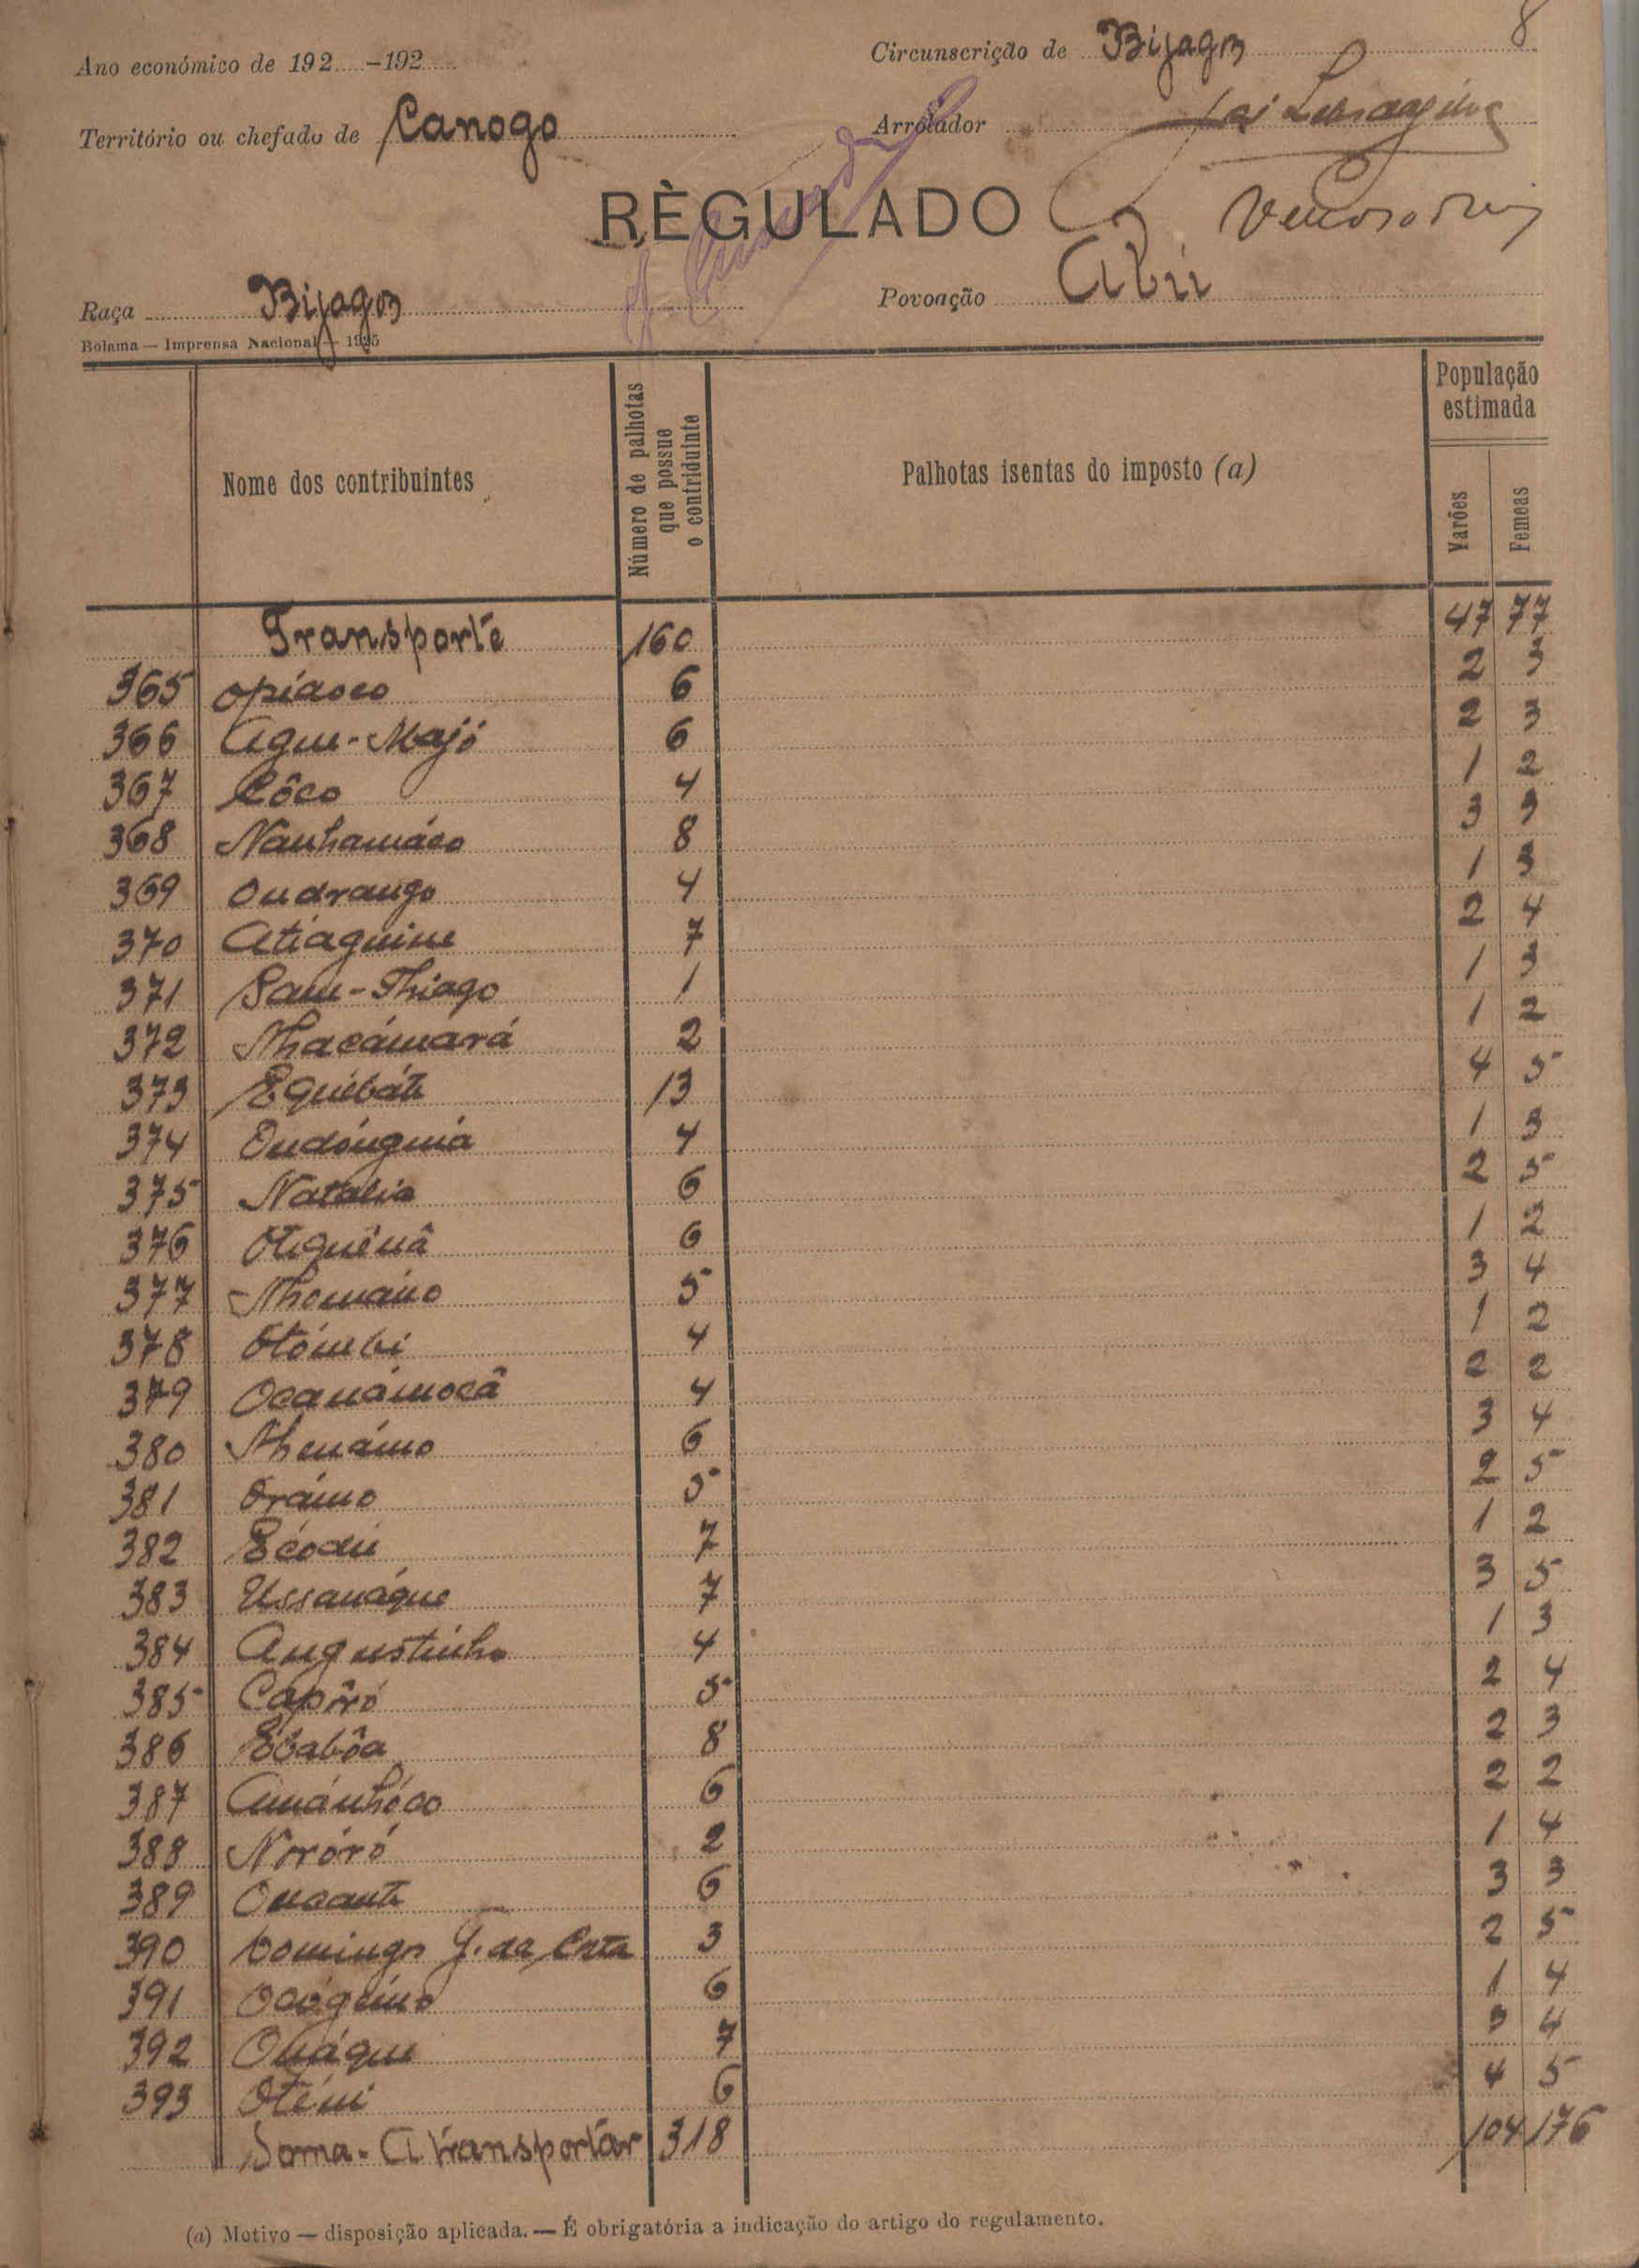 8
Ano económico de 192 -192
Circunscrição de Bijagoz
Território ou chefado de Canogo
Arrolador
RÈGULADO
Raça Bijagoz
Povoação Abú
Bolama — Imprensa Nacional — 1925
Nome dos contribuintes
Número de palhotas que possue o contriduinte
Palhotas isentas do imposto (a)
População estimada
Varões
Femeas
Transporte 160 47 77
365 Opiaoco 6 2 3
366 Ague-Majó 6 2 3
367 Côco 4 1 2
368 Nanhamáco 8 3 3
369 Ondrango 4 1 3
370 Atiaguine 7 2 4
371 Sam-Thiago 1 1 3
372 Nhacámará 2 1 2
373 Equiebáte 13 4 5
374 Ondónguiá 4 1 3
375 Natalia 6 2 5
376 Otiquéná 6 1 2
377 Nhománo 5 3 4
378 Otómbi 4 1 2
379 Ocanámocâ 4 2 2
380 Nhenámo 6 3 4
381 Orámo 5 2 5
382 Ecodú 7 1 2
383 Ussanáque 7 3 5
384 Augustinho 4 1 3
385 Capôró 5 2 4
386 Ebabôa 8 2 3
387 Amánhóco 6 2 2
388 Noróró 2 1 4
389 Oncante 6 3 3
390 Domingos G. da Costa 3 2 5
391 Ocóguino 6 1 4
392 Onáque 7 3 4
393 Oténi 6 4 5
Soma - A transportar 318 104 176
(a) Motivo — disposição aplicada. — É obrigatória a indicação do artigo do regulamento.